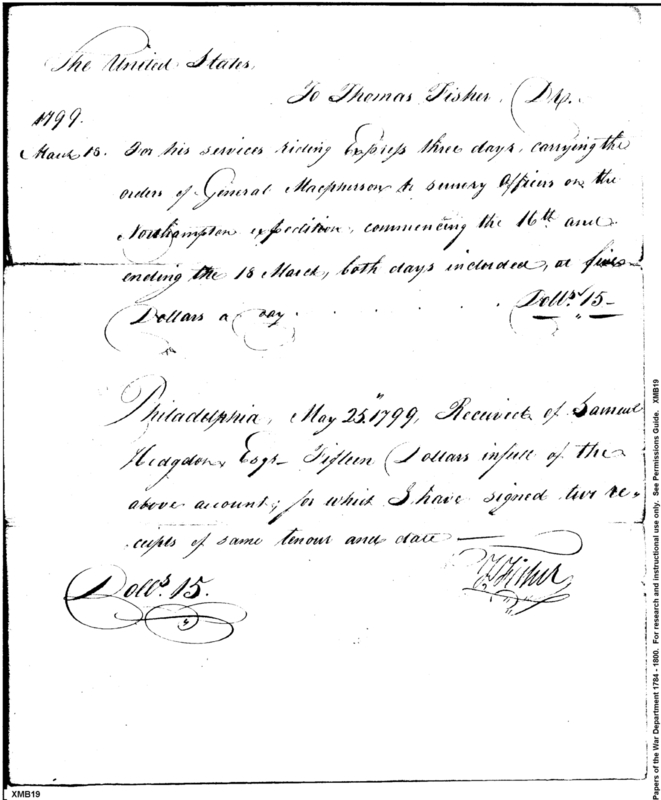 The United States,
To Thomas Fisher, Dr.
1799.
March 18. For his services riding Express three days, carrying the
orders of General Macpherson to sundry Officers on the
Northampton expedition, commencing the 16th and
ending the 18 March, both days included, at five
Dollars a day . . . . . . Dolls. 15 –
Philadelphia, May 25. 1799, Received of Samuel
Hodgdon, Esqr – Fifteen Dollars in full of the
above account; for which I have signed two re-
ceipts of same tenour and date —
TFisher
Dolls. 15.
XMB19
Papers of the War Department 1784 - 1800. For research and instructional use only. See Permissions Guide. XMB19